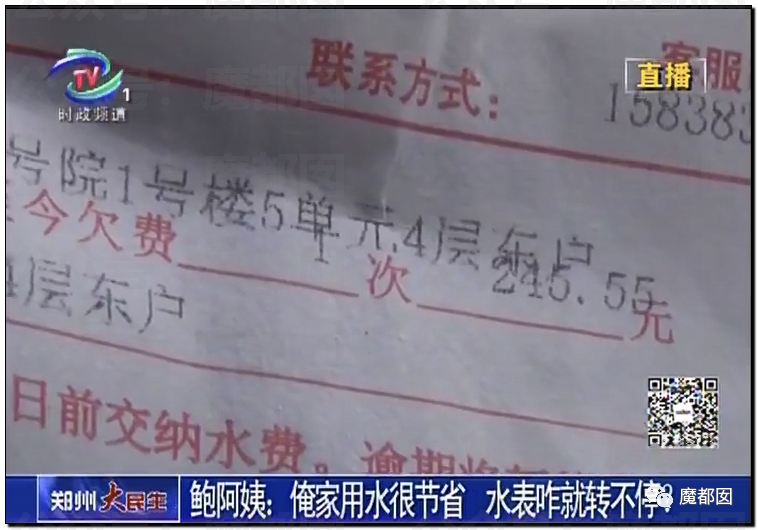 客服
联系方式：
直播
TV 1
时政频道
158383
号院1号楼5单元4层东户
今欠费 1 次 245.55 元
4层东户
日前交纳水费。逾期将
郑州大民生
鲍阿姨：俺家用水很节省 水表咋就转不停?
魔都囡